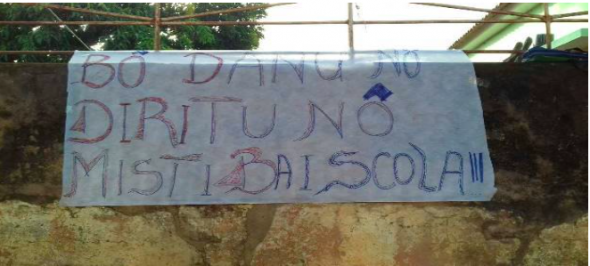 BÔ DANU NO
DIRITU NÔ
MISTI BAI SCOLA!!!